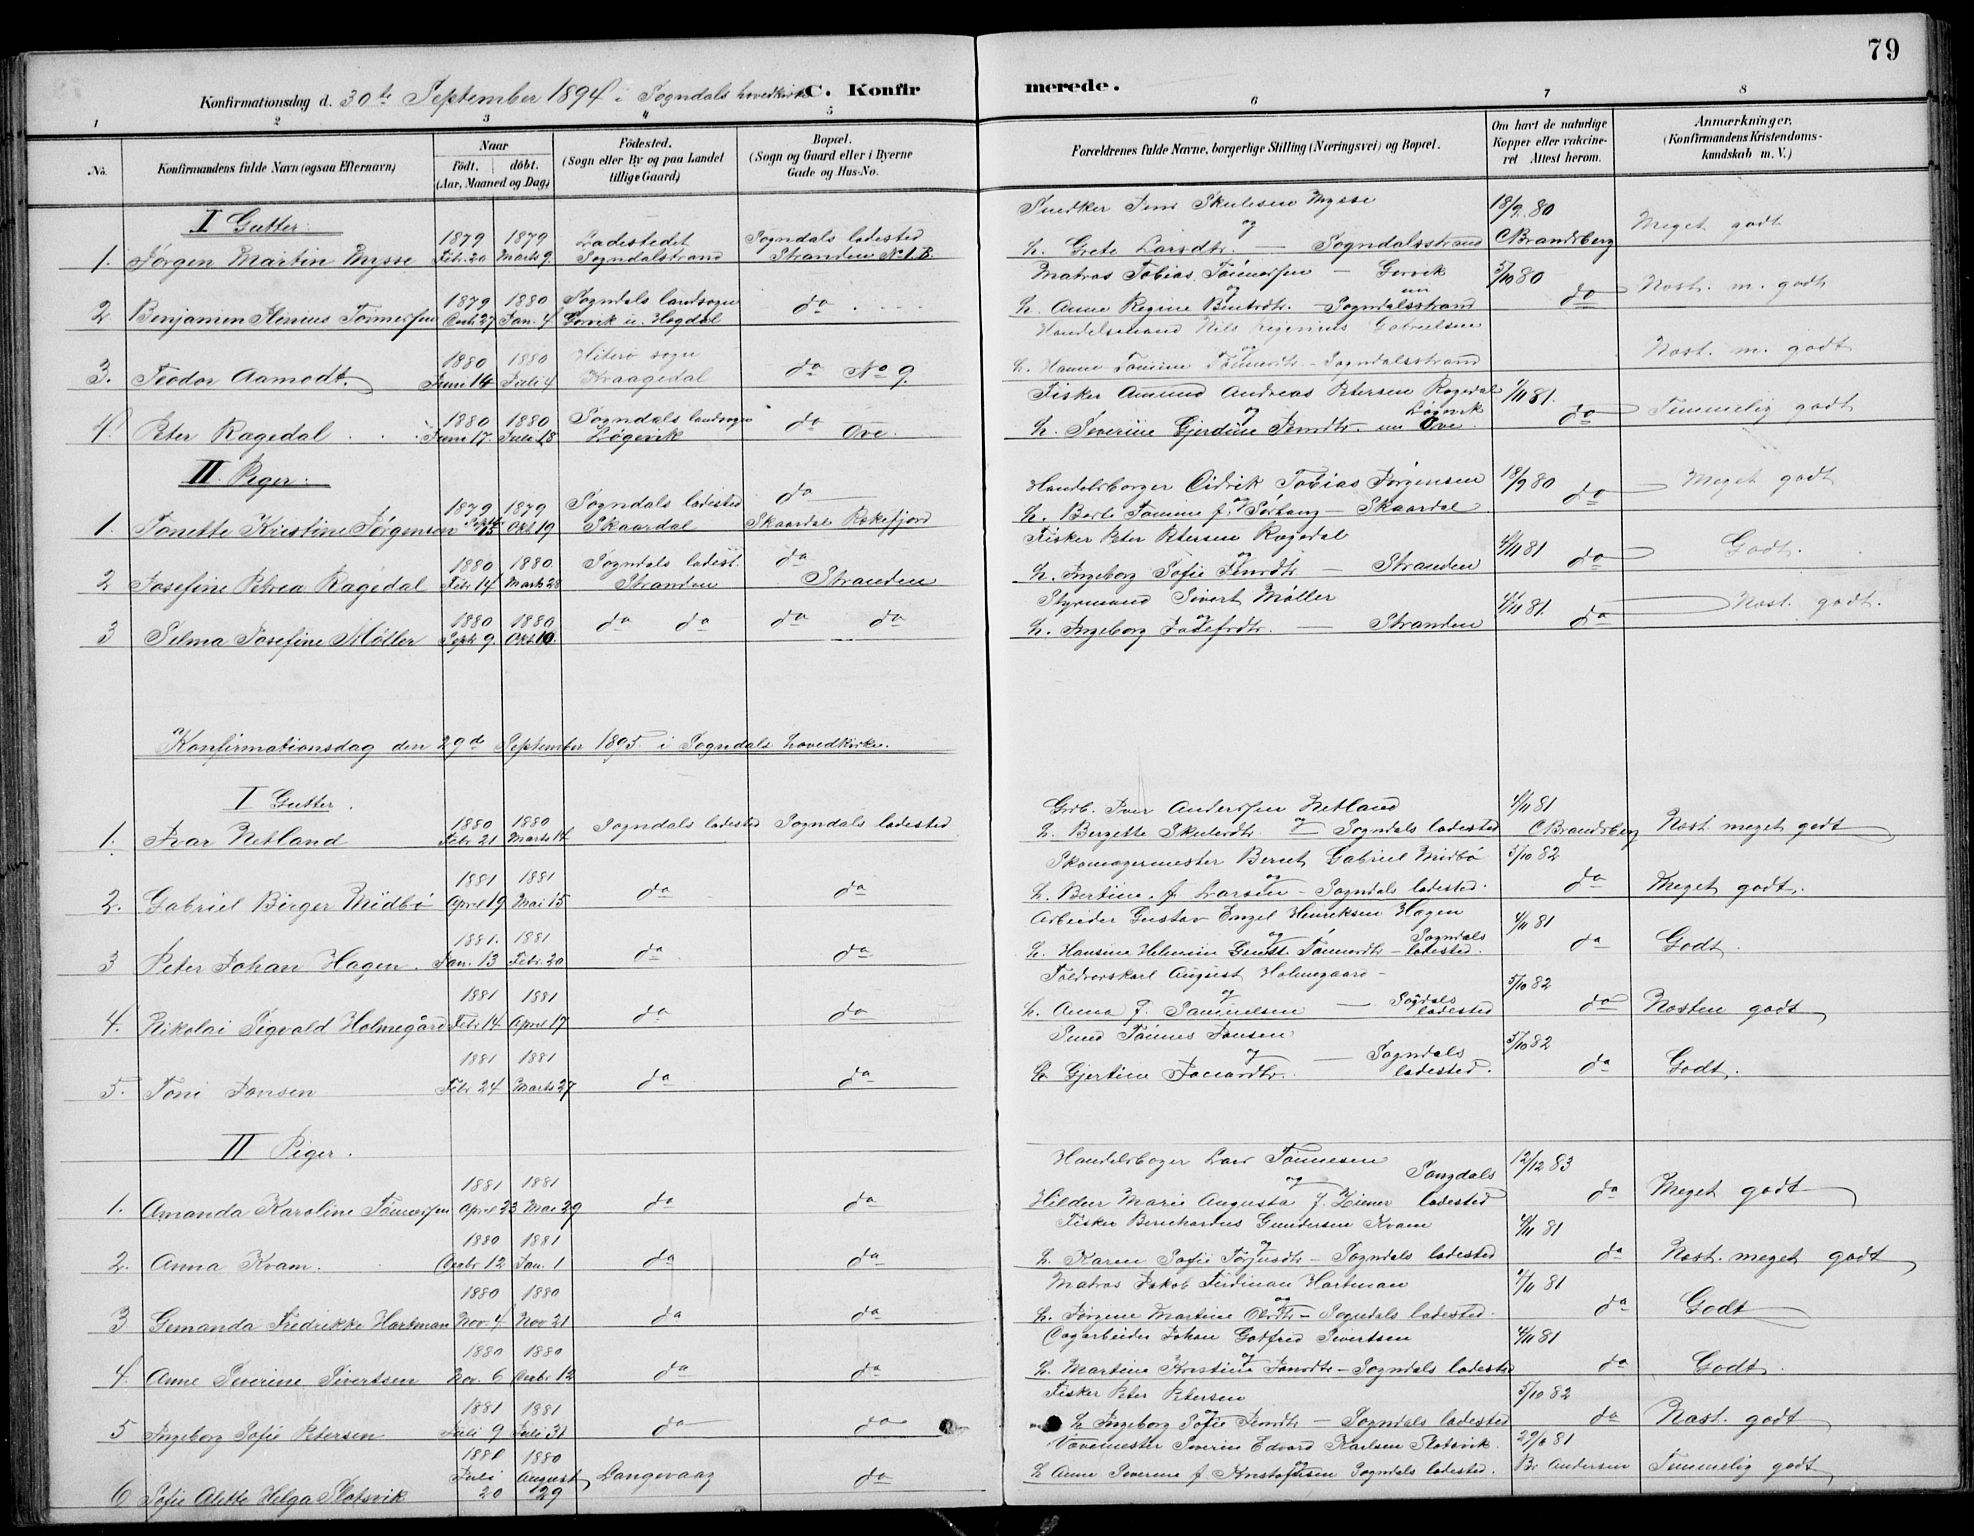 79
Konfirmationsdag d. 30te September 1894 i Sogndals hovedkirke C. Konfirmerede.
1 2 3 4 5 6 7 8
No. Konfirmandens fulde Navn (ogsaa Efternavn) Naar Födt. döbt. (Aar, Maaned og Dag) Födested. (Sogn eller By og paa Landet tillige Gaard) Bopæl. (Sogn og Gaard eller i Byerne Gade og Hus-No. Forældrenes fulde Navne, borgerlige Stilling (Næringsvei) og Bopæl. Om havt de naturlige Kopper eller vakcineret Attest herom. Anmærkninger. (Konfirmandens Kristendomskundskab m. V.)
I Gutter.
1879 1879 Ladestedet Sogndals ladested Snedker Jens Skulesen Mysse 18/9 80
1. Jørgen Martin Mysse Febr. 20 Marts 9. Sogndalstrand Stranden No 1.B. og H. Grete Larsdtr. — Sogndalsstrand C Brandsberg Meget godt
1879 1880 Sogndals landsogn Matros Tobias Tønnesen — Gyrvik 5/10 80
2. Benjamin Tønnesen 27 Jan. 4 u. Hogdal do og H. Anne Regine — nu Sogndalsstrand do Næst. m. godt
1880 1880 Hiterø sogn Handelsmand Nils Gabrielsen
3. Teodor Aamodt. Juni 14 Juli 4 Kraagedal do No 9. og H. Hanne Tomine Tønnesdtr. - Sogndalsstrand Næst. m. godt
1880 1880 Sogndals landsogn Fisker Amund Andreas Petersen Rægedal 4/11 81.
4. Peter Rægedal Juni 17. Juli 18 Løgevik do Ove. og H. Severine Gjerdine Jensdtr. Løgevik nu Ove. do Temmelig godt
II. Piger.
1879 1879 Sogndals ladested do Handelsborger Tobias Jørgensen 18/9 80
1. Tonette Kristine Jørgensen Septbr. 15 Okt. 19 Skaardal Skaardal Rekefjord og H. Berte Tomine f. — Skaardal do Meget godt
1880 1880 Sogndals ladest. do Fisker Peter Petersen Rægedal 4/11 81
2 Josefine Petrea Rægedal Febr. 14 Marts 28 Stranden Stranden og H. Ingeborg Sofie Jensdtr. — Stranden do Godt.
1880 1880 Styrmand Sivert Møller 4/11 81
3 Selma Josefine Møller Septb. 9. Okt. 10. do do do do og H. Ingeborg Josefsdtr. — Stranden do Næst. godt.
Konfirmationsdag den 29de September 1895. i Sogndals hovedkirke.
I Gutter.
1880 1880 Grdb. Iver Andersen Netland 4/11 81
1. Ivar Netland Febr. 21 Marts 14 Sogndals ladested Sogndals ladested H. Bergette Skulesdtr. og — Sogndals ladested C Brandsberg Næst. meget godt
1881 1881 Skomagermester Bernt Gabriel Midbø 5/10 82
2. Gabriel Birger Midbø April 19 Mai 15 do do og H. Bertine, f. Larsen - Sogndals ladested. do Meget godt.
1881. 1881 Arbeider Gustav Engel Henriksen Hagen 4/11 81
3 Peter Johan Hagen. Jan. 13 Febr. 20 do do og H. Hansine Helmine Tønnesdtr — Sogndals ladested. do Godt.
1881 1881 Toldrorskarl August Holmegaard - 5/10 82
4. Nikolai Sigvald Holmegård Febr. 14. April 17 do do og H. Anna f. Samuelsen — Sogndals ladested do Næsten godt
1881 1881 Smed Tønnes Jansen 5/10 82
5. Toni Jansen Febr. 24 Marts 27 do do og H. Gjertine — Sogndals ladested. do Godt.
II Piger.
1881 1881 Handelsboger Lars Tønnesen 12/12 83
1. Amanda Karoline Tønnesen April 23 Mai 29 do do og Hildur Marie Augusta f. Ziener Songdals ladested do Meget godt
1880 1881 Fisker Bernhardus Gundersen Kvam 4/11 81
2. Anna Kvam. Decbr. 12 Jan. 1 do do og H. Karen Sofie — Sogndals ladested do Næst. meget godt
1880 1880 Matros Jakob Ferdinan Hartman 4/11 81
3 Gemanda Fredrikke Hartman Nov. 4 Nov 21 do do og H. Jørgine Martine Olsdtr — Sogndals ladested. do Godt
1880 1880 Dagarbeider Johan Gotfred Sivertsen 4/11 81
4. Anne Severine Sivertsen Nov. 6 Decbr. 12 do do og H. Martine Kristine Jensdtr. — Sogndals ladested do Godt.
1881 1881 Fisker Peter Petersen 5/10 82
5 Ingeborg Sofie Petersen Juli 9 Juli 31 do do og H. Ingeborg Sofie Jensdtr — Sogndals ladested do Næst. godt
1880 1880 Vævemester Severin Edvard Karlsen Slotsvik. 29/6 81
6 Sofie Alette Helga Slotsvik Juli 20 August 29 Langevaag do og H Anne Severine f. Kristofersen Sogndals ladested. Andersen Temmelig godt